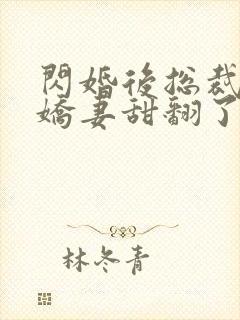 閃婚後總裁
嬌妻甜翻了
林冬青